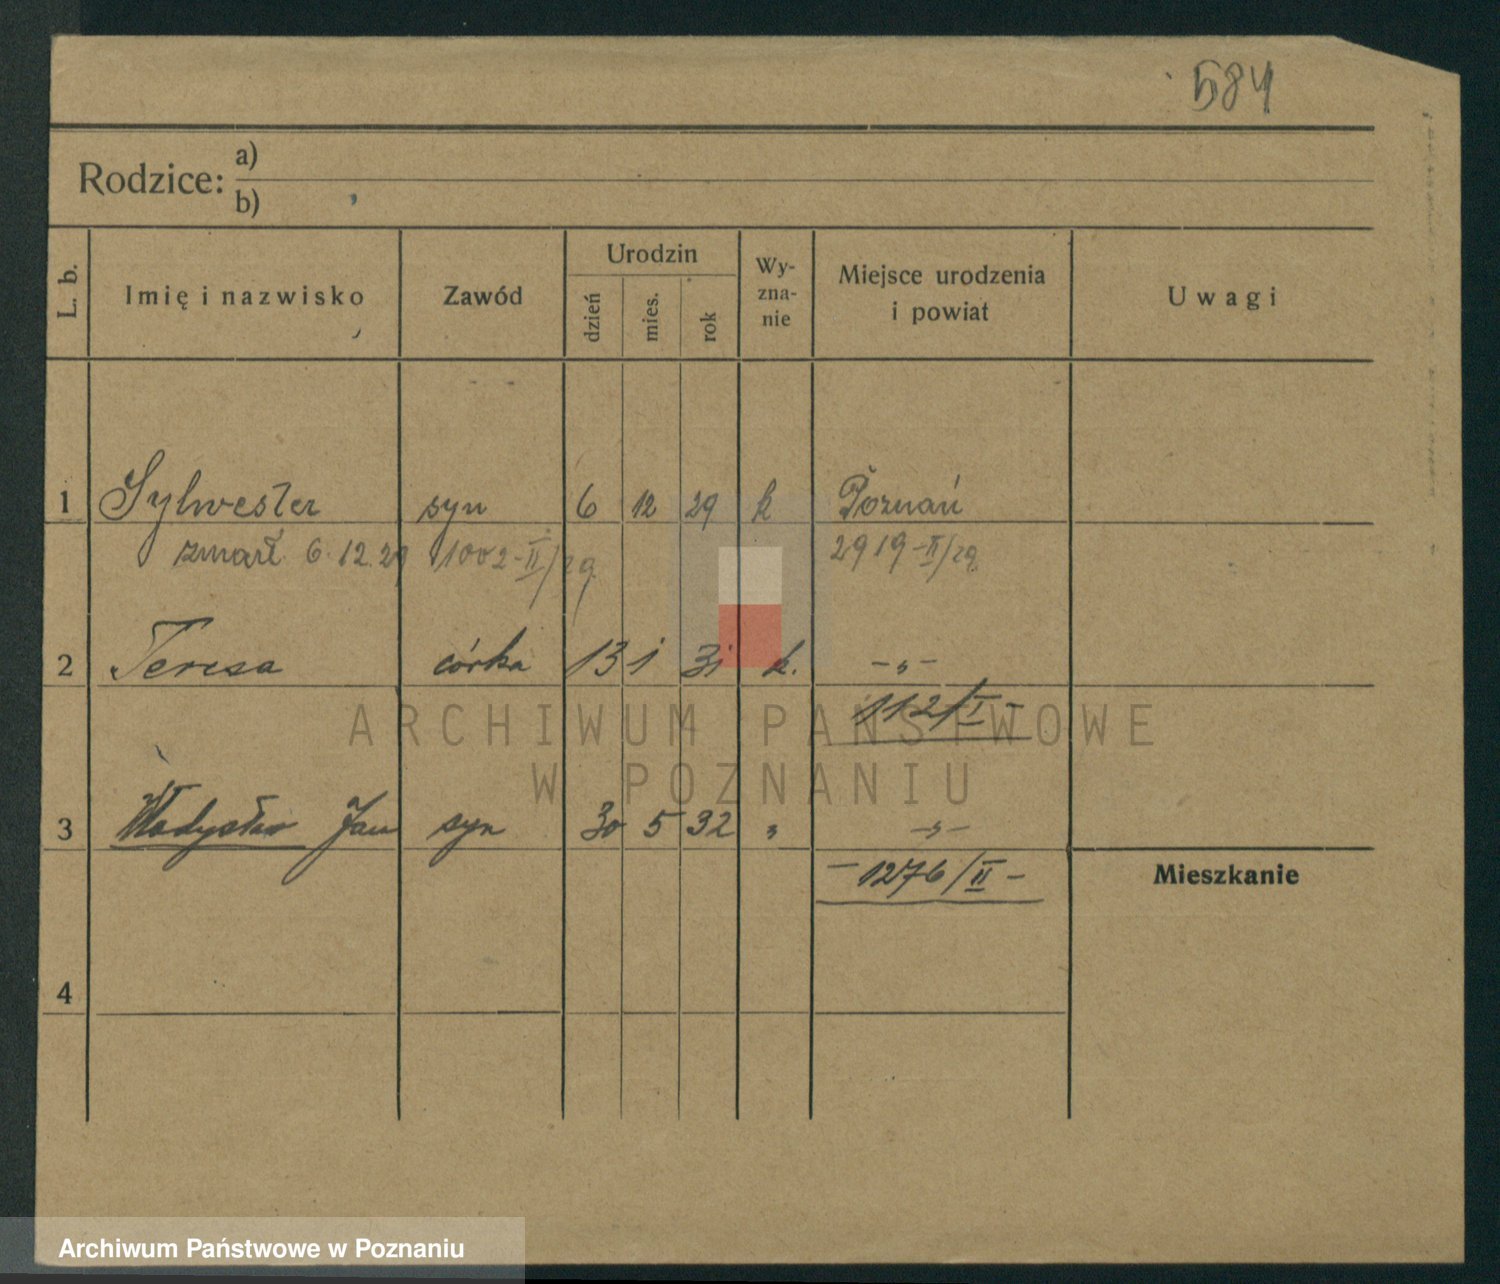 584
Rodzice: a)
b)
L. b. Imię i nazwisko Zawód Urodzin dzień mies. rok Wy-zna-nie Miejsce urodzenia i powiat Uwagi
1 Sylwester syn 6 12 29 k Poznań
zmarł 6.12.29 1002-II/29. 2919-II/29.
2 Teresa córka 13 1 31 k. -„-
112/I-
3 Władysław Jan syn 30 5 32 „ -„-
-1276/II-
Mieszkanie
4
ARCHIWUM PAŃSTWOWE
W POZNANIU
Archiwum Państwowe w Poznaniu